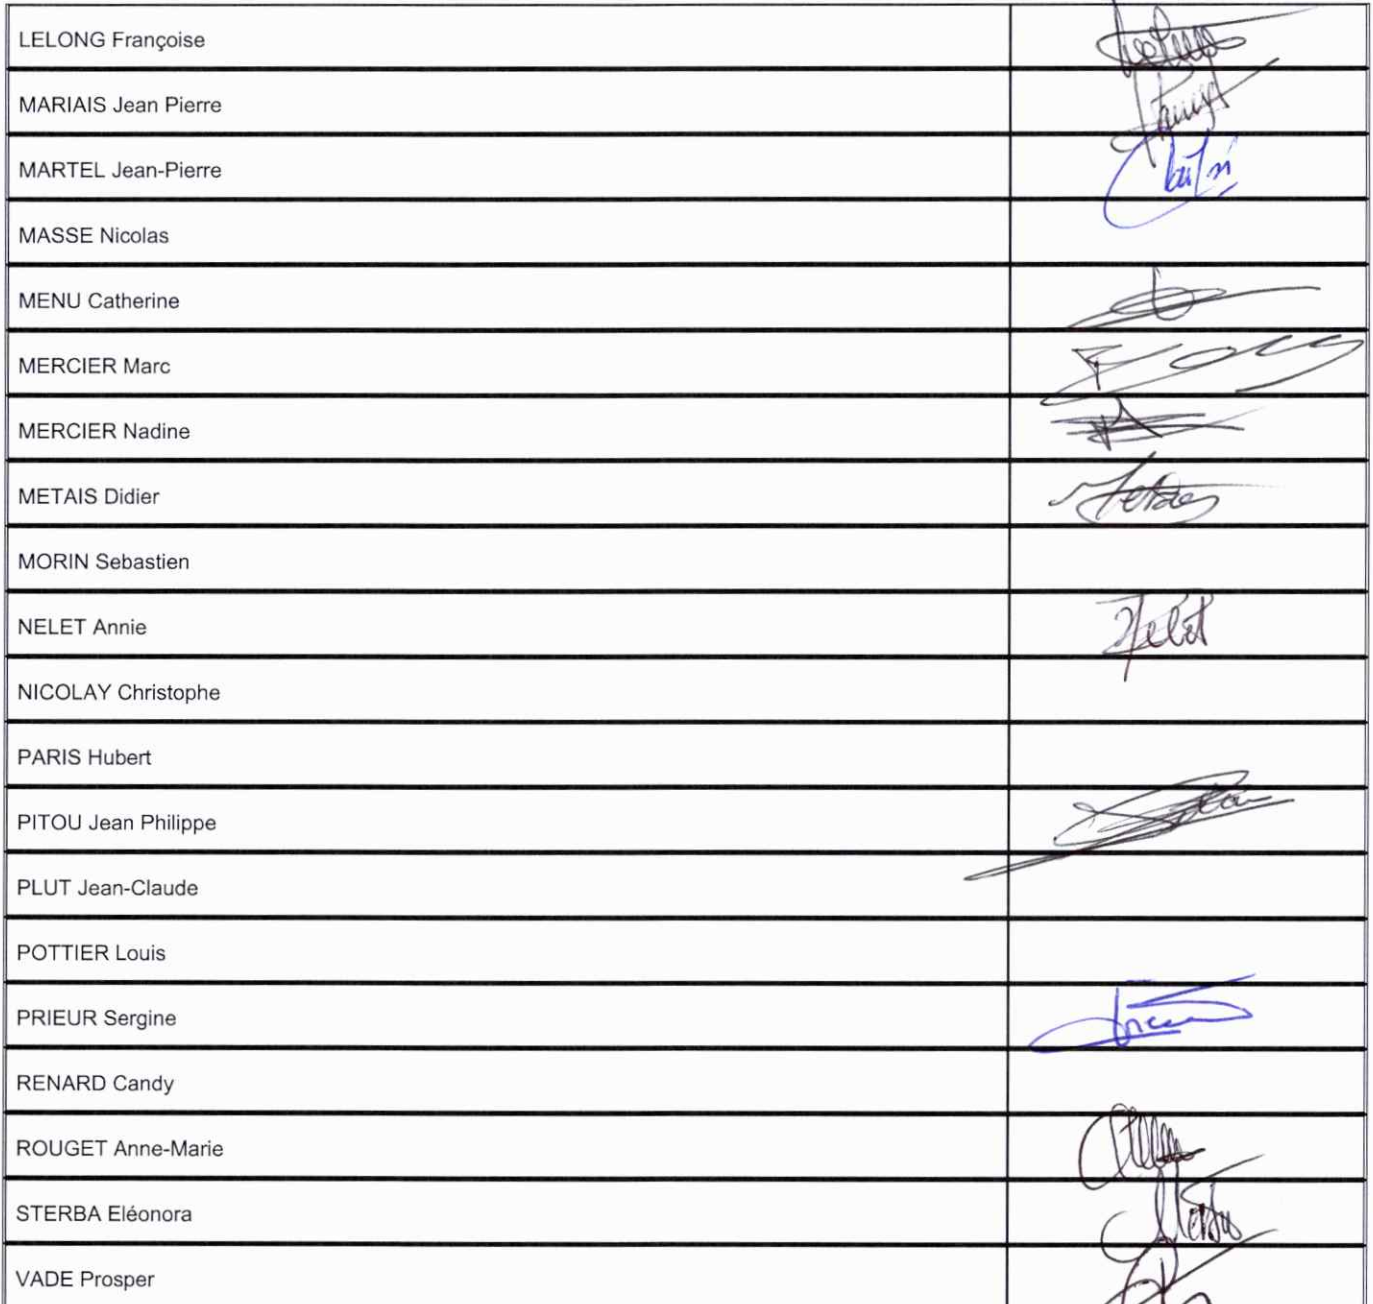 LELONG Françoise
MARIAIS Jean Pierre
MARTEL Jean-Pierre
MASSE Nicolas
MENU Catherine
MERCIER Marc
MERCIER Nadine
METAIS Didier
MORIN Sebastien
NELET Annie Nelet
NICOLAY Christophe
PARIS Hubert
PITOU Jean Philippe
PLUT Jean-Claude
POTTIER Louis
PRIEUR Sergine
RENARD Candy
ROUGET Anne-Marie
STERBA Eléonora
VADE Prosper